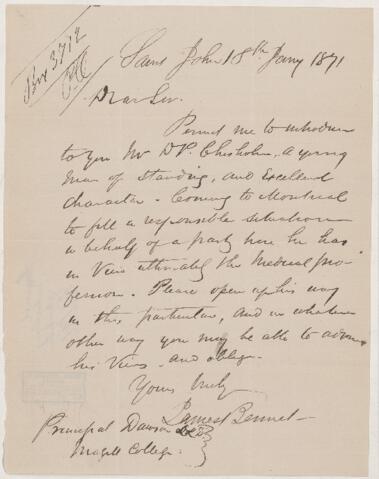 Box 3712
Saint John 18th Jany 1871
Dear Sir.
Permit me to introduce
to you Mr D P. Chisholm, a young
man of standing, and excellent
character. Coming to Montreal
to fill a responsible situation
in behalf of a party here he has
in view ultimately the Medical pro
fession. Please open up his way
in this particular, and in whatever
other way you may be able to advance
his views. and oblige.
Yours truly
James Bennet
Principal Dawson
Magill College.